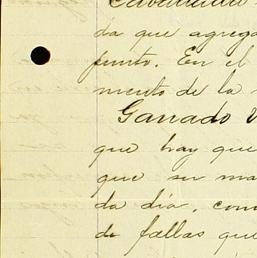 da que agrega
punto. En el
mento de la
Ganado
que hay que
que su ma
da dia, com
de fallas que